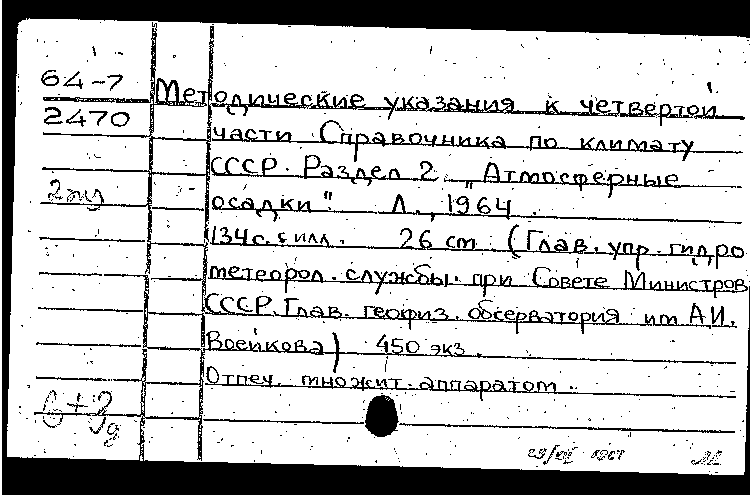 64-7
2470
Методические указания к четвертой
части Справочника по климату
СССР. Раздел 2. „Атмосферные
осадки" Л., 1964.
134с. с илл. 26 cm (Глав. упр. гидро
метеорол. службы при Совете Министров
СССР. Глав. геофиз. обсерватория им А.И.
Воейкова) 450 экз.
Отпеч. множит. аппаратом.